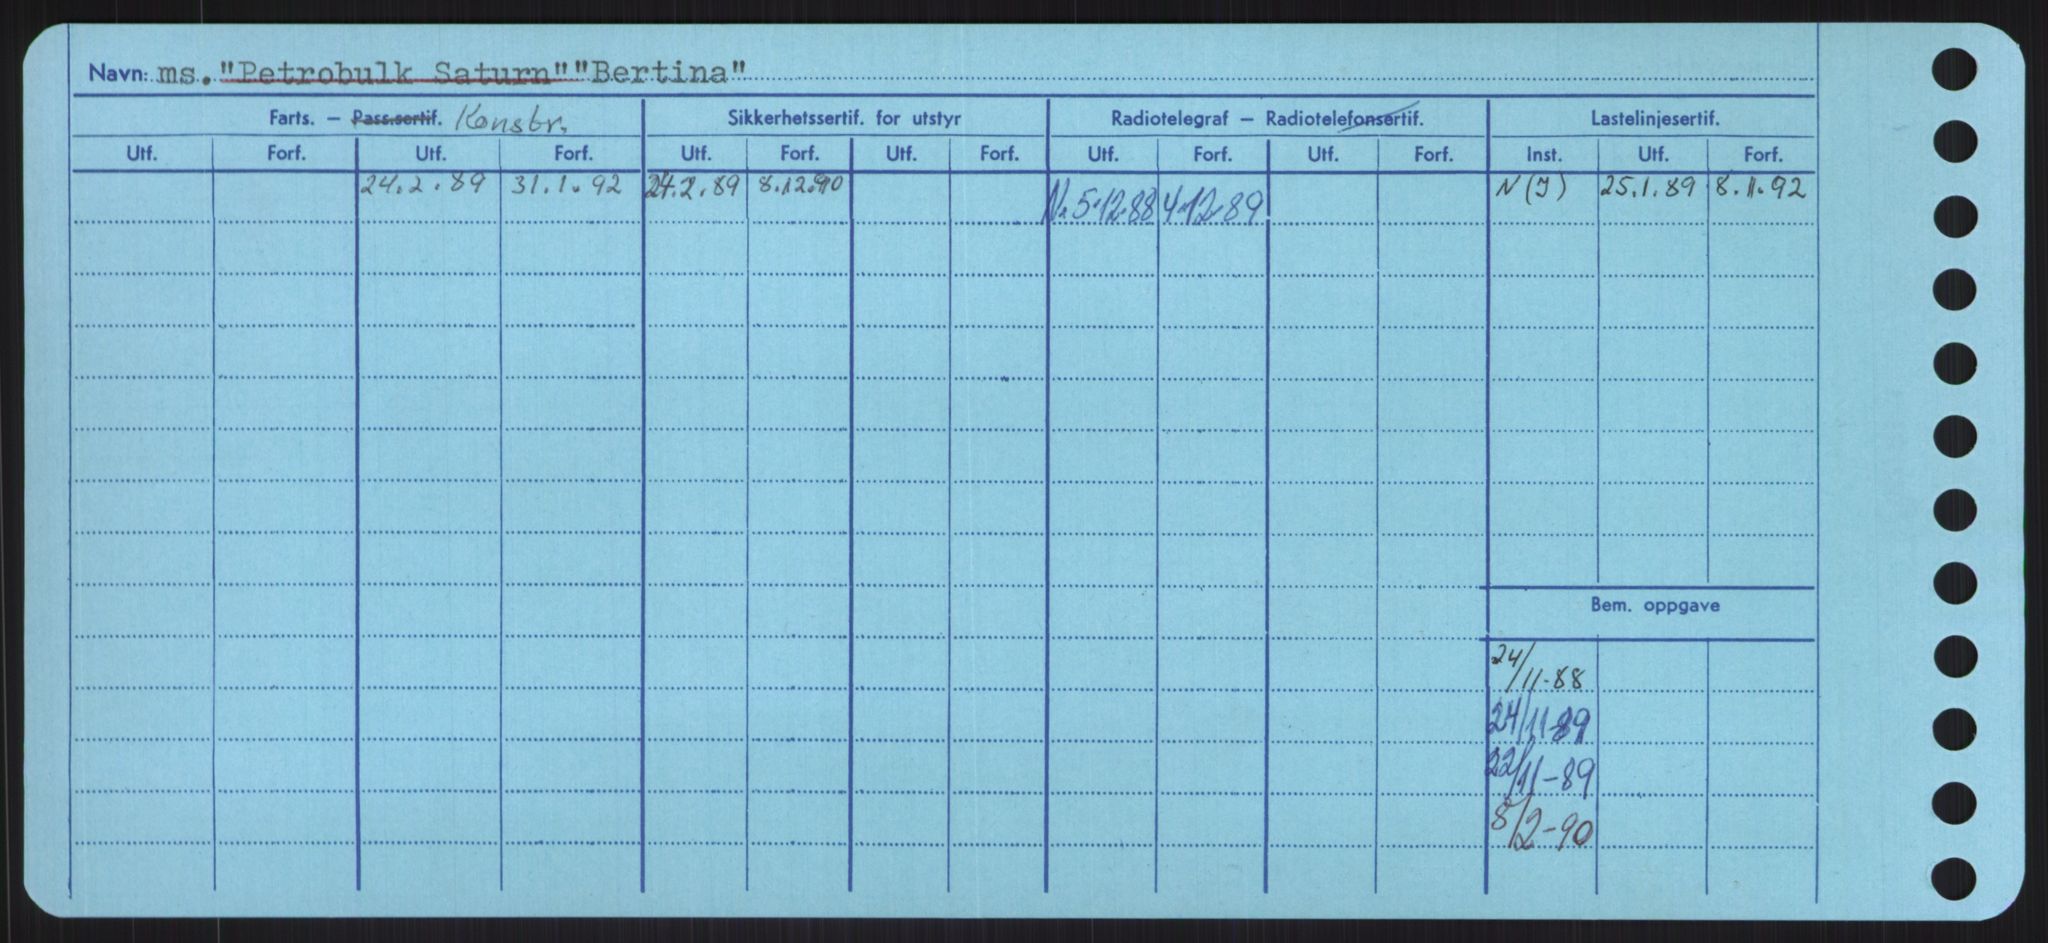 Navn: ms. "Petrobulk Saturn" "Bertina"
Farts. – Pass.sertif. Konstr. Sikkerhetssertif. for utstyr Radiotelegraf – Radiotelefonsertif. Lastelinjesertif.
Utf. Forf. Utf. Forf. Utf. Forf. Utf. Forf. Utf. Forf. Utf. Forf. Inst. Utf. Forf.
24.2.89 31.1.92 24.2.89 8.12.90 N. 5.12.88 4.12.89 N(I) 25.1.89 8.11.92
Bem. oppgave
24/11-88
24/11-89
22/11-89
8/2-90